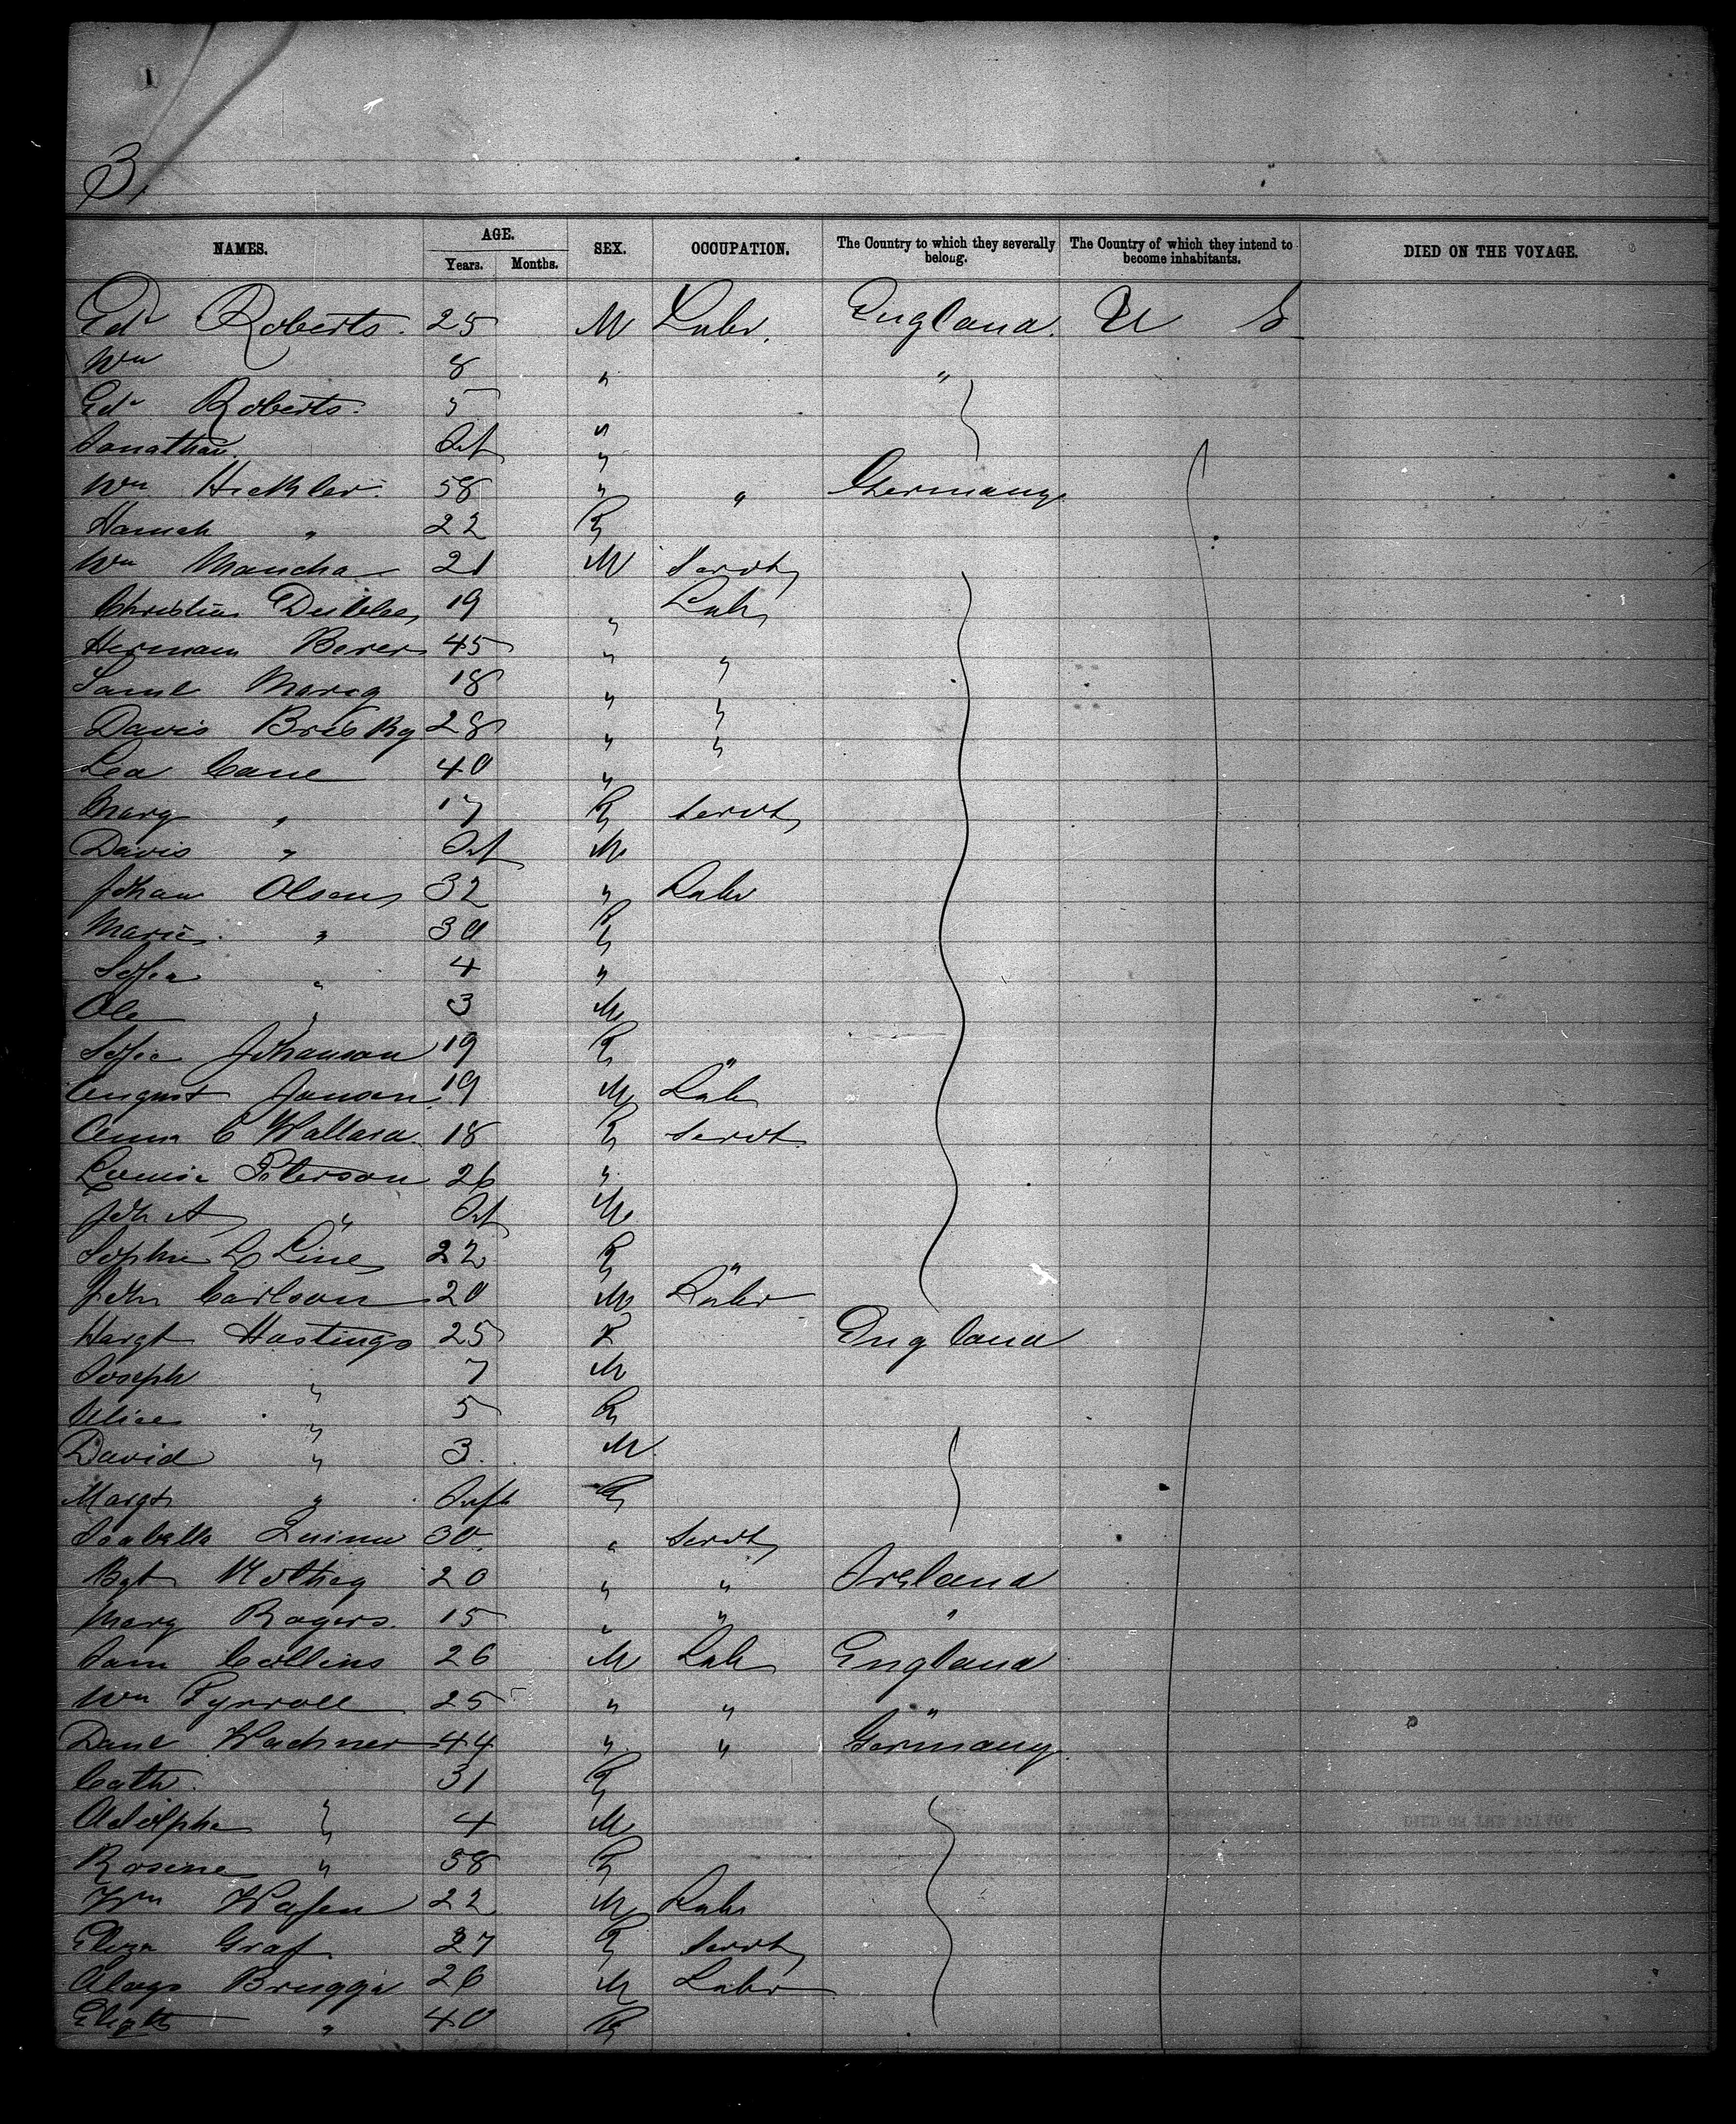 3.
NAMES. AGE. Years. Months. SEX. OCCUPATION. The Country to which they severally belong. The Country of which they intend to become inhabitants. DIED ON THE VOYAGE.
Edr Roberts. 25 M Labr. England. U S
Wm 8 " "
Edr Roberts. 5 "
Jonathan. Inf "
Wm 58 " " Germany
Hannah " 22 F
Wm Mancha 21 M Servt
Christian 19 " Labr
Hermann Berer 45 " "
Saml 18 " "
Davis 28 " "
Lea Cane 40 "
Mary " 17 F Servt
Davis " Inf M
Johan Olsen 32 " Labr
Marie " 30 F
Sofia " 4 "
Ole " 3 M
Sofie Johanson 19 F "
August Janson 19 M Lab
Anna C Wallara 18 F Servt
Louisa Peterson 26 "
Joh A " Inf M
Sophie L Line 22 F "
John Carlson 20 M Labr
Margt Hastings 25 F England
Joseph " 7 M
Alice " 5 F
David " 3. M
Margt " Inft F
Isabella Quinn 30 " Servt
Bgt 20 " " Ireland
Mary Rogers. 15 " " "
Sam Collins 26 M Lab England
Wm Tyrroll 25 " " "
Danl Wachner 44 " " Germany
Cath. 31 F
Adolphe " 4 M
Rosine " 38 F
Wm Wafen 22 M Labr
Eliza Graf 27 F Servt
Aloys Brugga 26 M Labr
" 40 F